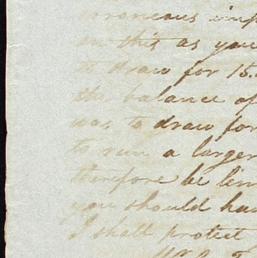 in this as you
to draw for 15.
the balance of
was to draw for
to run a larger
therefore be
you should
I shall protect